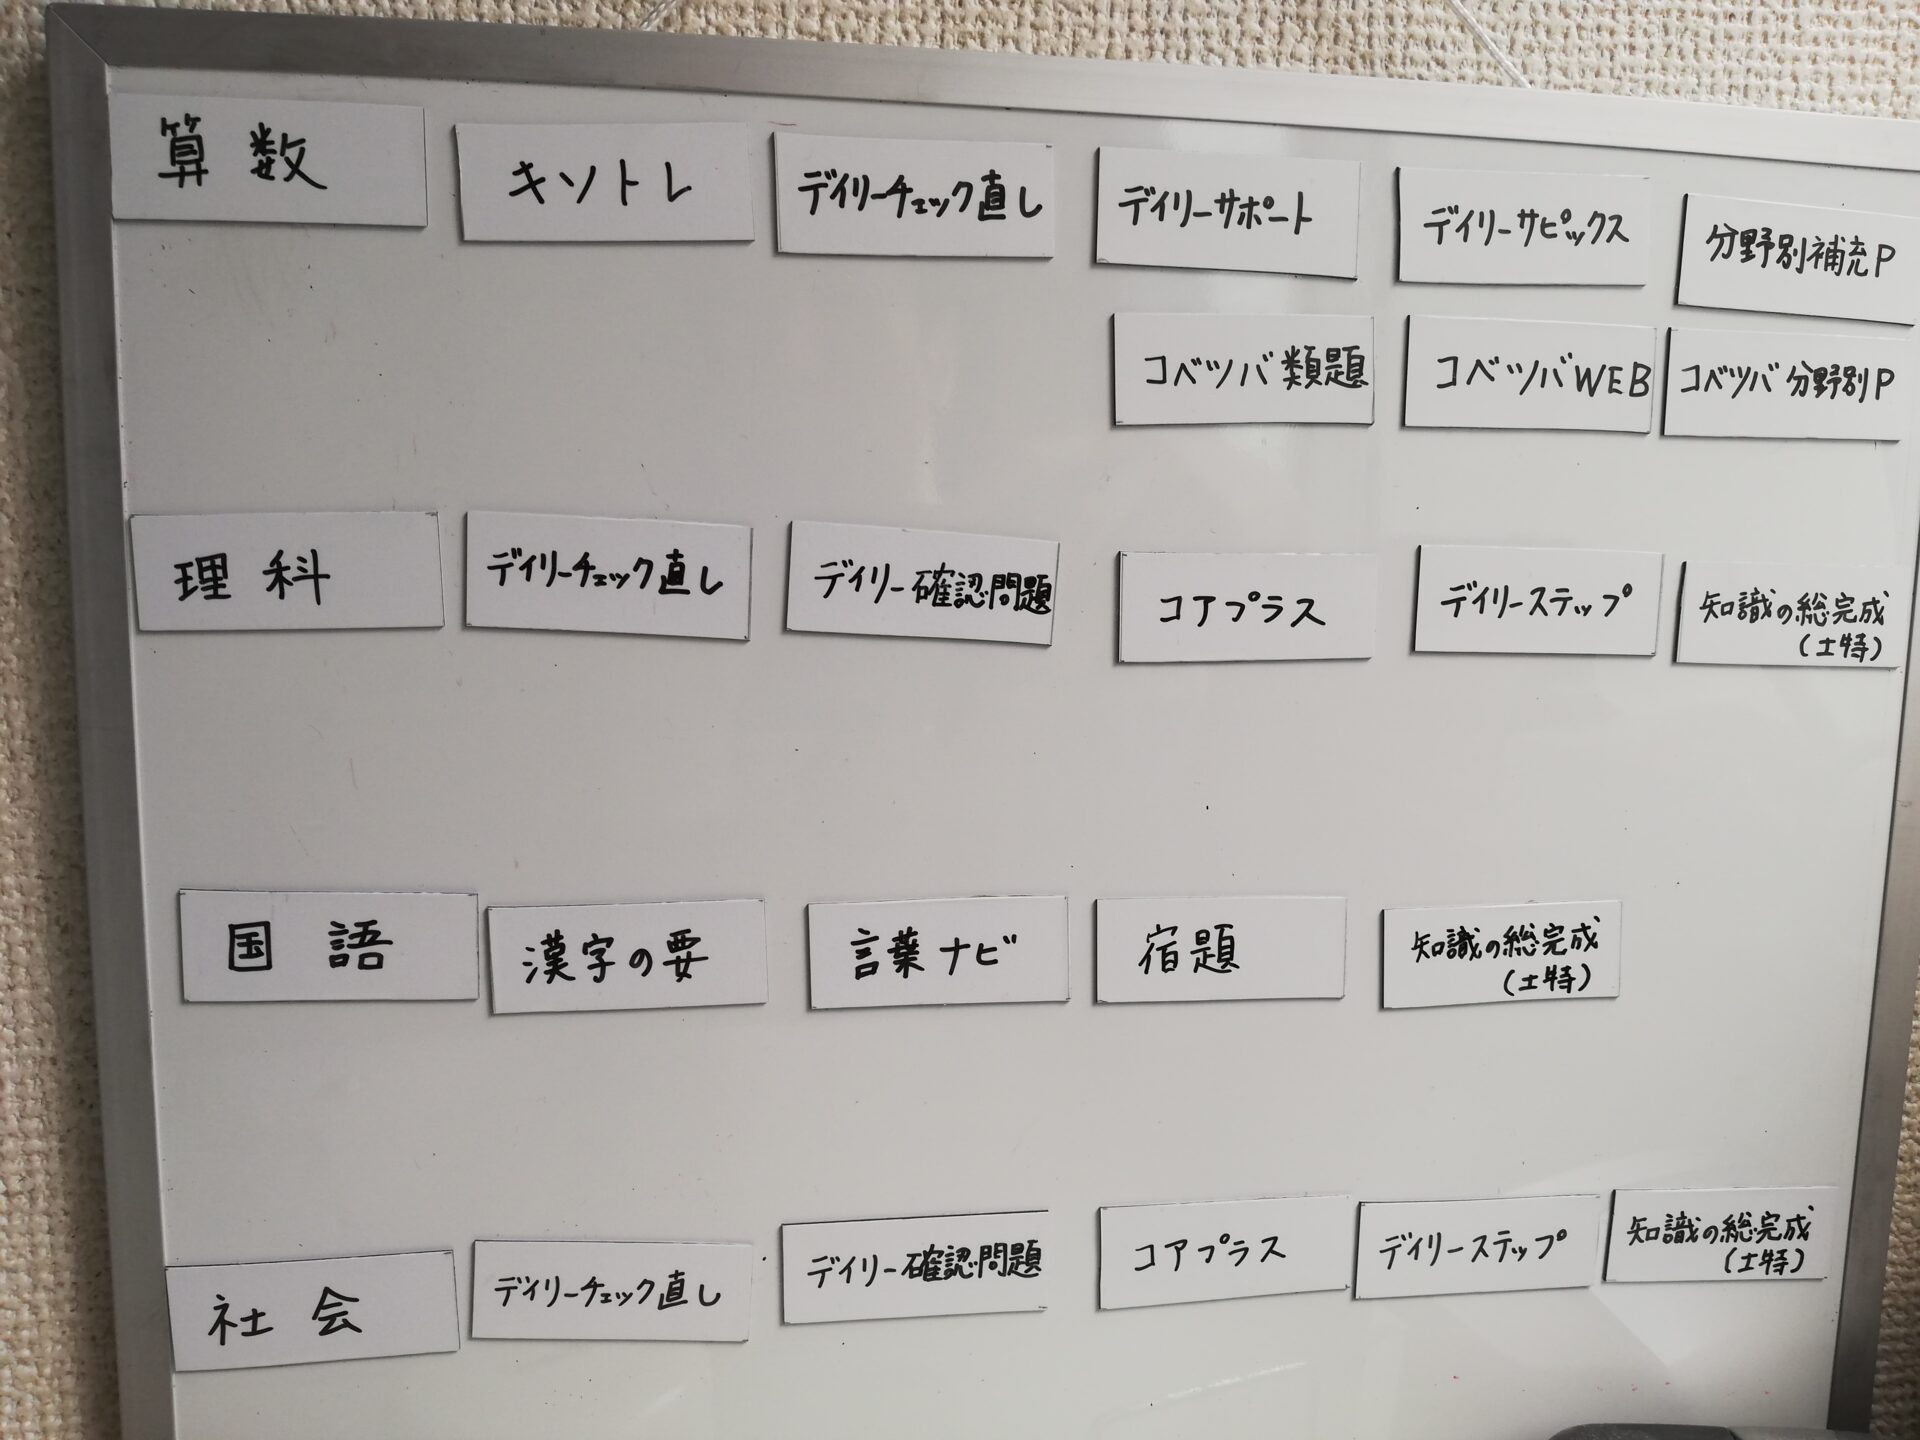 算数
キソトレ
デイリーチェック直し
デイリーサポート
デイリーサピックス
分野別補充P
コベツバ類題
コベツバWEB
コベツバ分野別P
理科
デイリーチェック直し
デイリー確認問題
コアプラス
デイリーステップ
知識の総完成
(土特)
国語
漢字の要
言葉ナビ
宿題
知識の総完成
(土特)
社会
デイリーチェック直し
デイリー確認問題
コアプラス
デイリーステップ
知識の総完成
(土特)